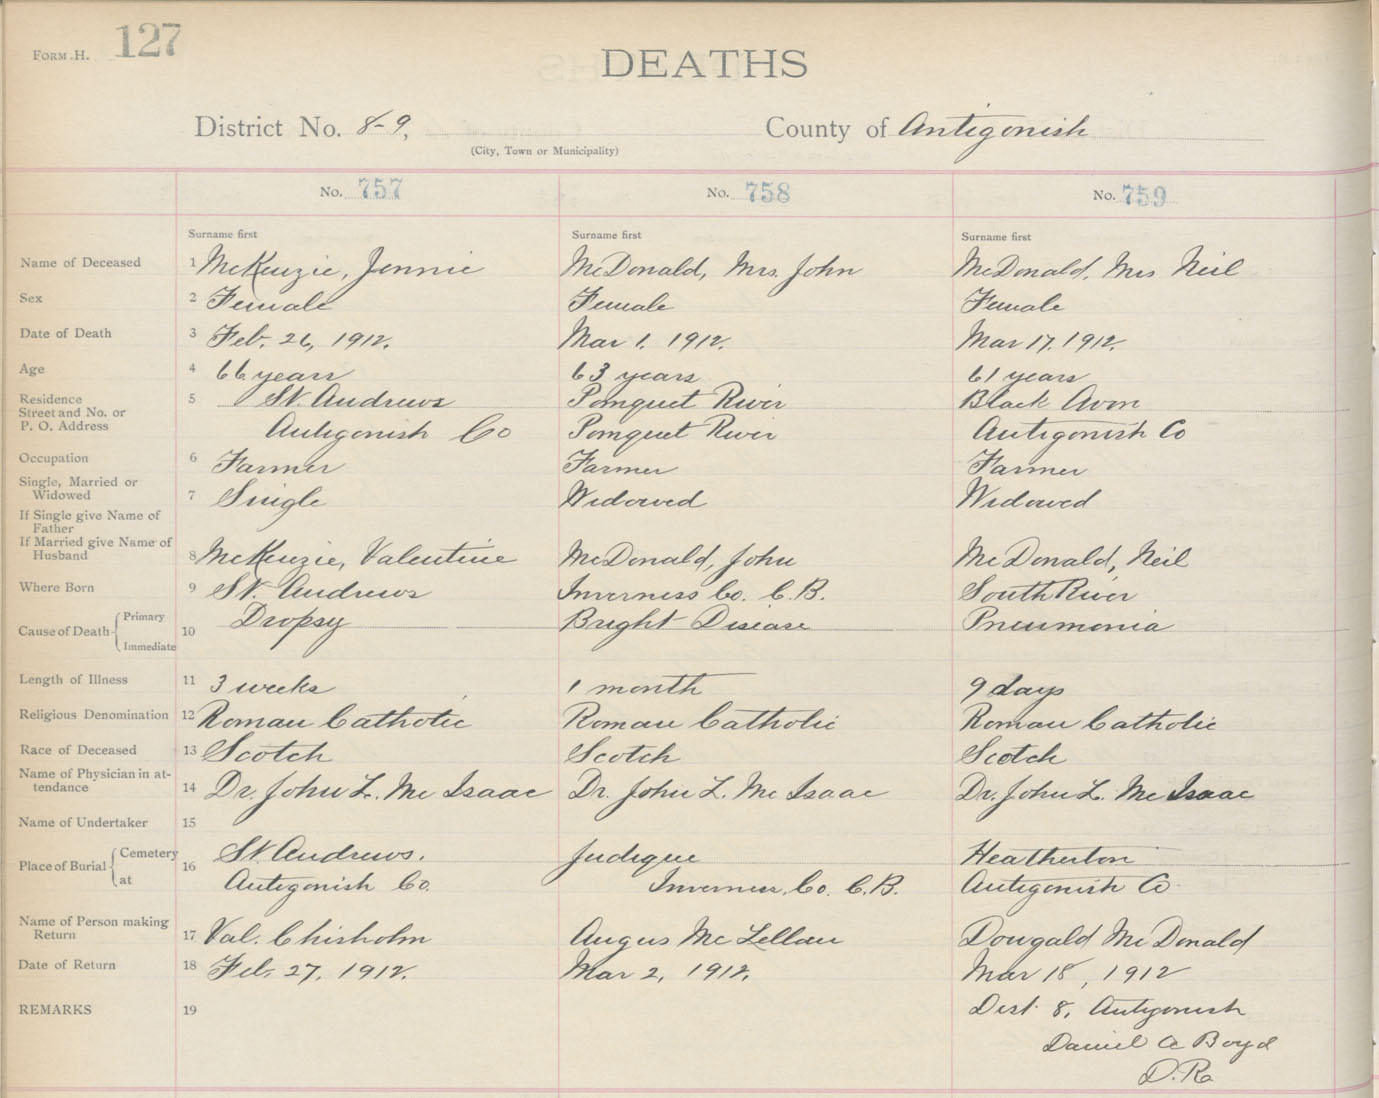 FORM H. 127
DEATHS
District No. 8-9,
County of Antigonish
(City, Town or Municipality)
No. 757 No. 758 No. 759
Surname first Surname first Surname first
Name of Deceased 1 McKenzie, Jennie McDonald, Mrs. John McDonald, Mrs Neil
Sex 2 Female Female Female
Date of Death 3 Feb. 26, 1912. Mar 1. 1912. Mar 17. 1912.
Age 4 66 years 63 years 61 years
Residence 5 St. Andrews Pomquet River Black Avon
Street and No. or
P. O. Address Antigonish Co Pomquet River Antigonish Co
Occupation 6 Farmer Farmer Farmer
Single, Married or
Widowed 7 Single Widowed Widowed
If Single give Name of
Father
If Married give Name of
Husband 8 McKenzie, Valentine McDonald, John McDonald, Neil
Where Born 9 St. Andrews Inverness Co. C.B. South River
Cause of Death { Primary Immediate 10 Dropsy Bright Disease Pneumonia
Length of Illness 11 3 weeks 1 month 9 days
Religious Denomination 12 Roman Catholic Roman Catholic Roman Catholic
Race of Deceased 13 Scotch Scotch Scotch
Name of Physician in at-
tendance 14 Dr. John L. McIsaac Dr. John L. McIsaac Dr. John L. McIsaac
Name of Undertaker 15
Place of Burial { Cemetery at 16 St. Andrews. Judique Heatherton
Antigonish Co. Inverness, Co. C.B. Antigonish Co.
Name of Person making
Return 17 Val. Chisholm Angus McLellan Dougald McDonald
Date of Return 18 Feb. 27, 1912. Mar 2, 1912. Mar 18, 1912
REMARKS 19 Dist 8, Antigonish
Daniel A Boyd
D.R.